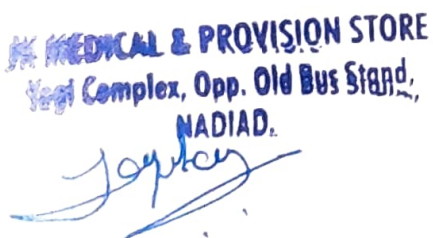 JK MEDICAL & PROVISION STORE
Yogi Complex, Opp. Old Bus Stand,
NADIAD.